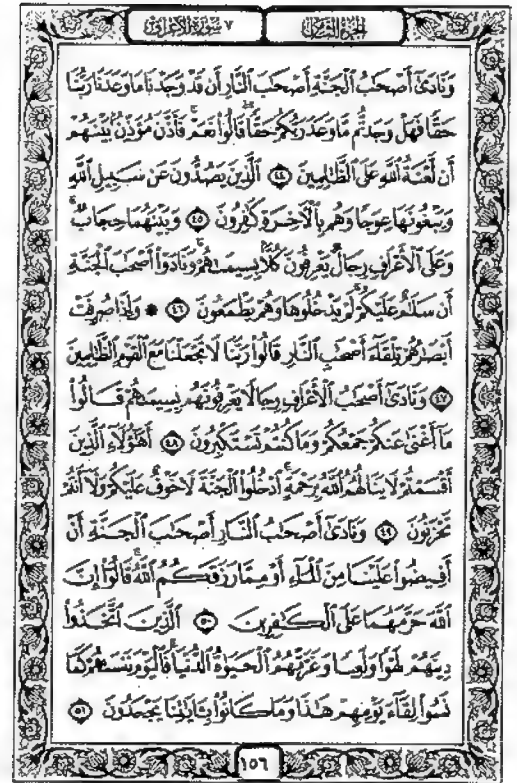 الجزء الثامن
٧ سورة الأعراف
وَنَادَىٰٓ أَصْحَٰبُ ٱلْجَنَّةِ أَصْحَٰبَ ٱلنَّارِ أَن قَدْ وَجَدْنَا مَا وَعَدَنَا رَبُّنَا
حَقًّا فَهَلْ وَجَدتُّم مَّا وَعَدَ رَبُّكُمْ حَقًّا قَالُوا۟ نَعَمْ ۚ فَأَذَّنَ مُؤَذِّنٌۢ بَيْنَهُمْ
أَن لَّعْنَةُ ٱللَّهِ عَلَى ٱلظَّٰلِمِينَ ٤٤ ٱلَّذِينَ يَصُدُّونَ عَن سَبِيلِ ٱللَّهِ
وَيَبْغُونَهَا عِوَجًا وَهُم بِٱلْءَاخِرَةِ كَٰفِرُونَ ٤٥ وَبَيْنَهُمَا حِجَابٌ ۚ
وَعَلَى ٱلْأَعْرَافِ رِجَالٌ يَعْرِفُونَ كُلًّۢا بِسِيمَىٰهُمْ ۚ وَنَادَوْا۟ أَصْحَٰبَ ٱلْجَنَّةِ
أَن سَلَٰمٌ عَلَيْكُمْ ۚ لَمْ يَدْخُلُوهَا وَهُمْ يَطْمَعُونَ ٤٦ ۞ وَإِذَا صُرِفَتْ
أَبْصَٰرُهُمْ تِلْقَآءَ أَصْحَٰبِ ٱلنَّارِ قَالُوا۟ رَبَّنَا لَا تَجْعَلْنَا مَعَ ٱلْقَوْمِ ٱلظَّٰلِمِينَ
٤٧ وَنَادَىٰٓ أَصْحَٰبُ ٱلْأَعْرَافِ رِجَالًا يَعْرِفُونَهُم بِسِيمَىٰهُمْ قَالُوا۟
مَآ أَغْنَىٰ عَنكُمْ جَمْعُكُمْ وَمَا كُنتُمْ تَسْتَكْبِرُونَ ٤٨ أَهَٰٓؤُلَآءِ ٱلَّذِينَ
أَقْسَمْتُمْ لَا يَنَالُهُمُ ٱللَّهُ بِرَحْمَةٍ ۚ ٱدْخُلُوا۟ ٱلْجَنَّةَ لَا خَوْفٌ عَلَيْكُمْ وَلَآ أَنتُمْ
تَحْزَنُونَ ٤٩ وَنَادَىٰٓ أَصْحَٰبُ ٱلنَّارِ أَصْحَٰبَ ٱلْجَنَّةِ أَنْ
أَفِيضُوا۟ عَلَيْنَا مِنَ ٱلْمَآءِ أَوْ مِمَّا رَزَقَكُمُ ٱللَّهُ ۚ قَالُوٓا۟ إِنَّ
ٱللَّهَ حَرَّمَهُمَا عَلَى ٱلْكَٰفِرِينَ ٥٠ ٱلَّذِينَ ٱتَّخَذُوا۟
دِينَهُمْ لَهْوًا وَلَعِبًا وَغَرَّتْهُمُ ٱلْحَيَوٰةُ ٱلدُّنْيَا ۚ فَٱلْيَوْمَ نَنسَىٰهُمْ كَمَا
نَسُوا۟ لِقَآءَ يَوْمِهِمْ هَٰذَا وَمَا كَانُوا۟ بِـَٔايَٰتِنَا يَجْحَدُونَ ٥١
١٥٦